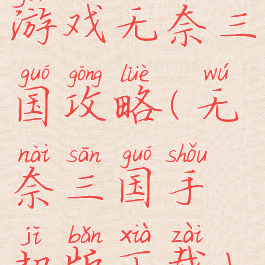 游戏无奈三
guó gōng lüè wú
国攻略(无
nài sān guó shǒu
奈三国手
jī bǎn xià zài
机版下载)